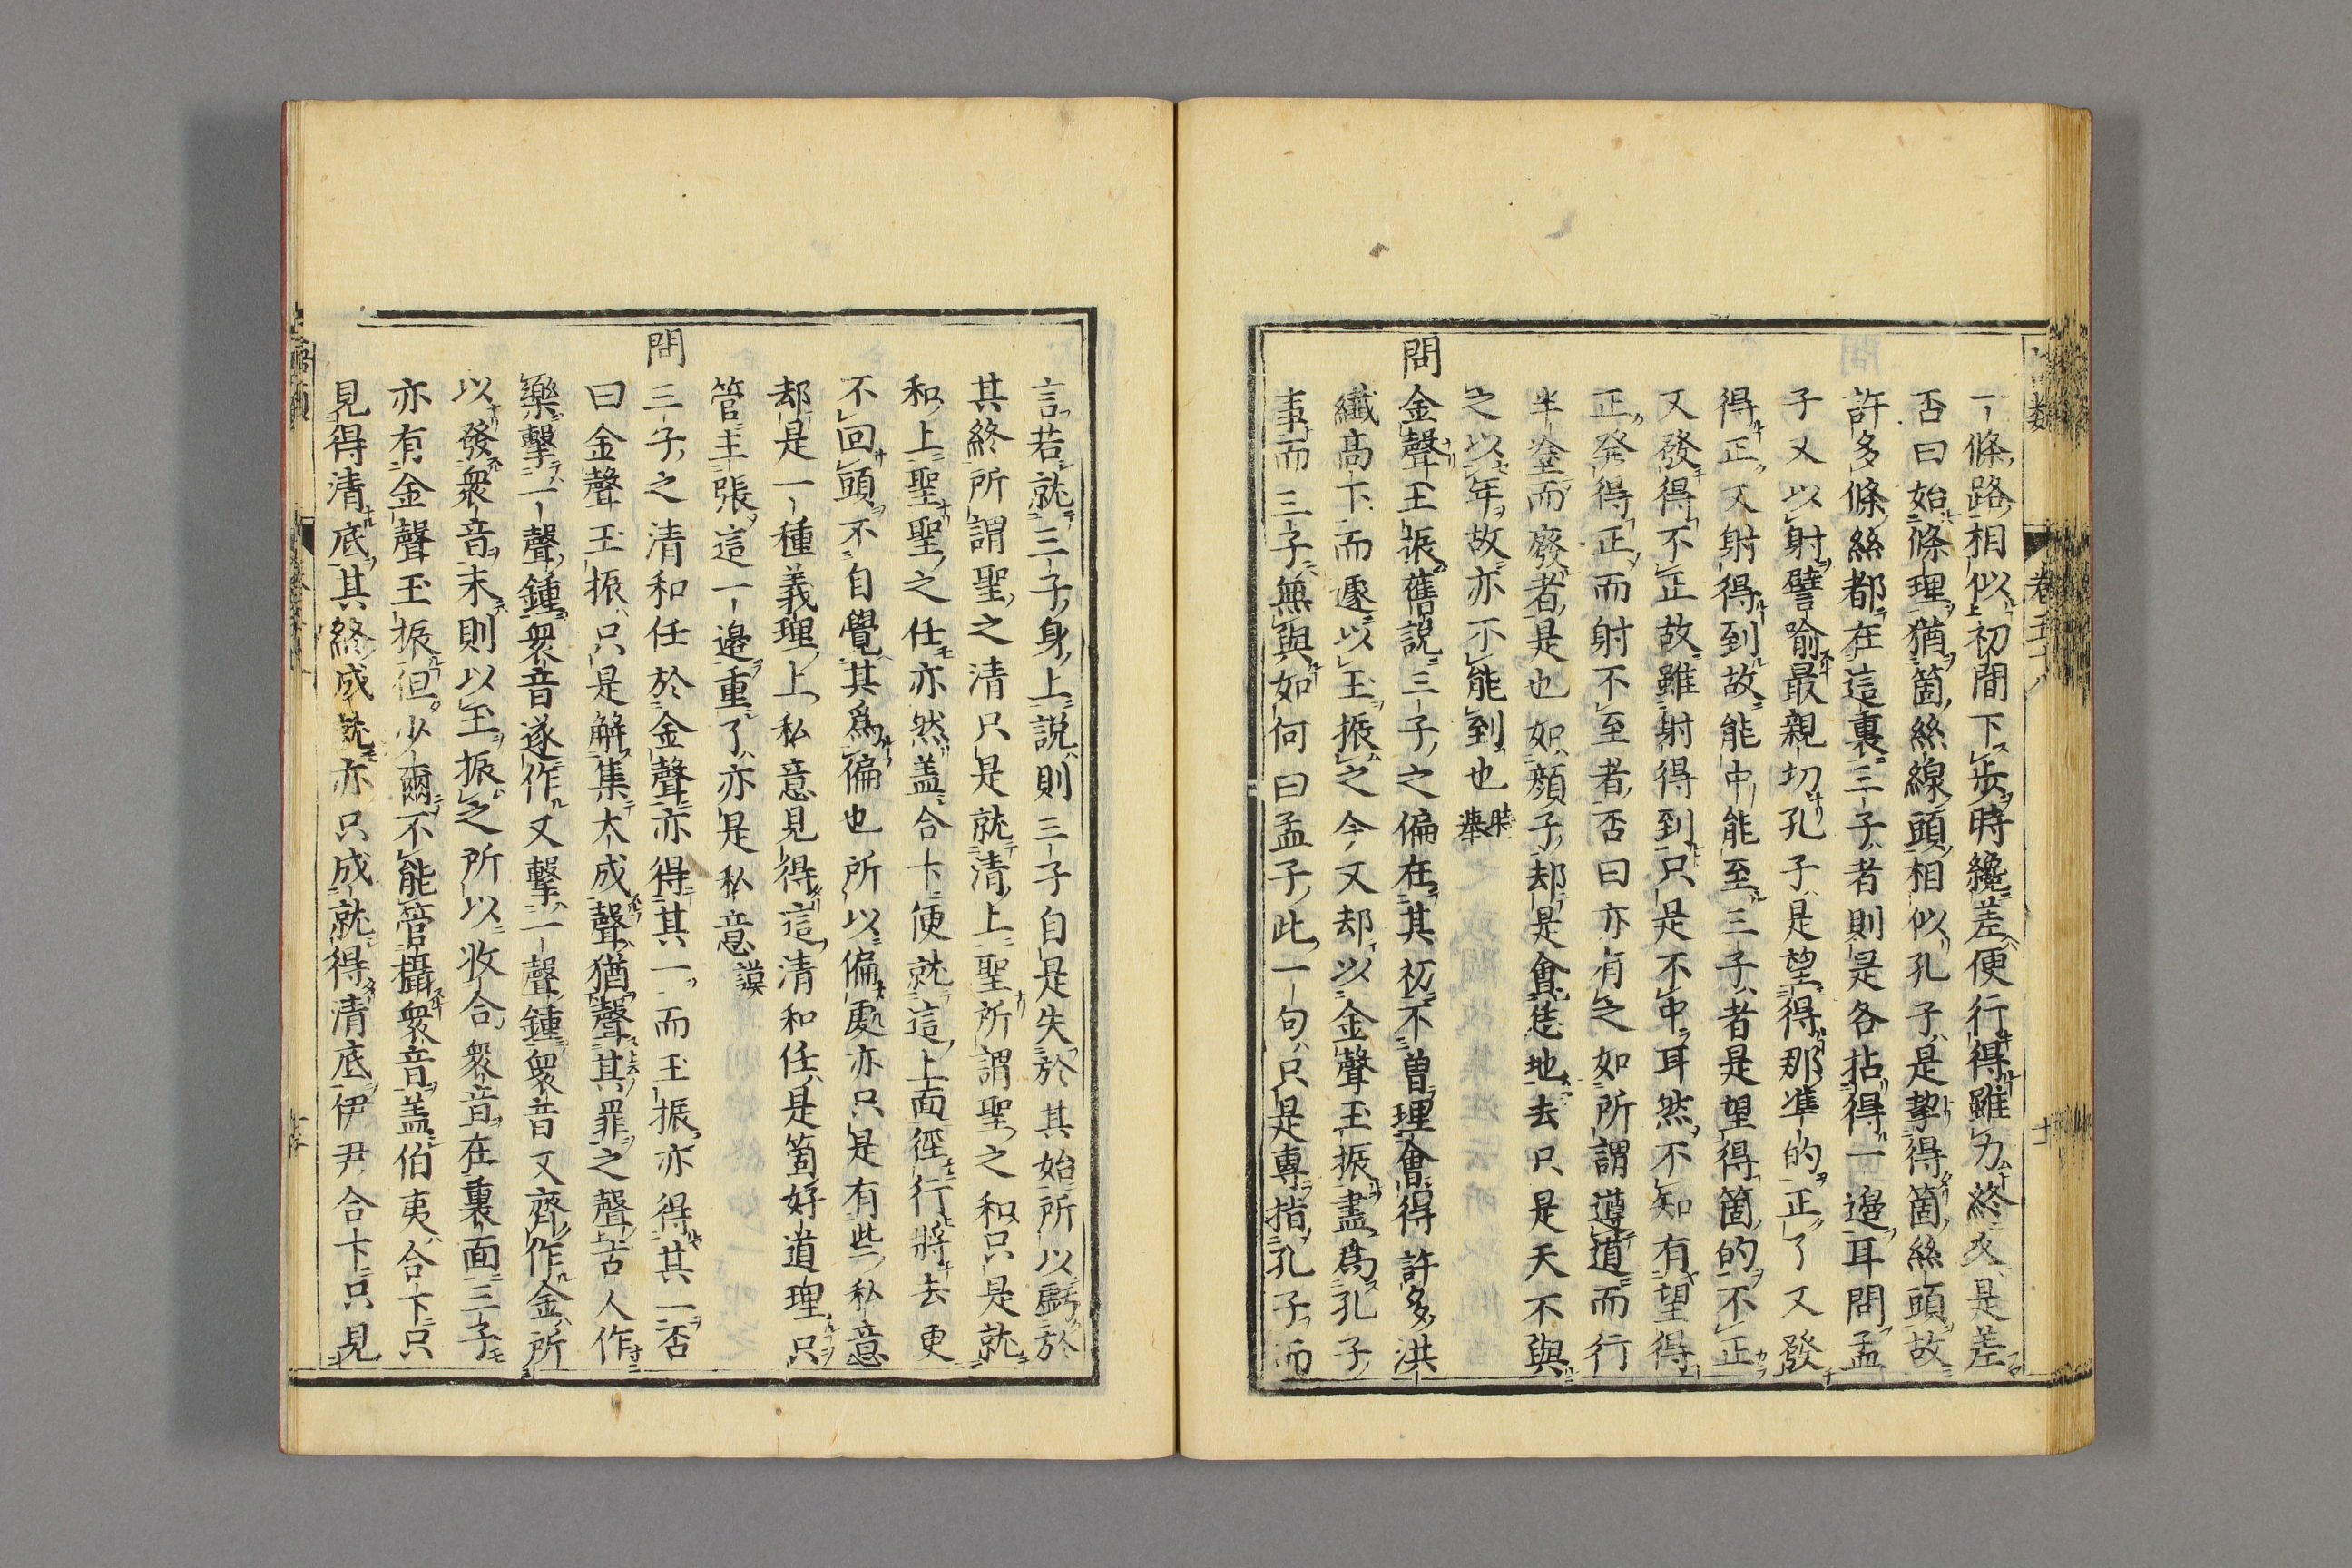 一條路相似初間下步時纔差便行得雖力終久是差
否曰始條理猶箇絲線頭相似孔子是挈得箇絲頭故
許多條絲都在這裏三子者則是各拈得一邊耳問孟
子又以射譬喻最親切孔子是望得那準的正了又發
得正又射得到故能中能至三子者是望得箇的不正
又發得不正故雖射得到只是不中耳然不知有望得
正發得正而射不至者否曰亦有之如所謂遵道而行
半塗而廢者是也如顔子却是會恁地去只是天不與
之以年故亦不能到也
問金聲玉振舊説三子之偏在其初不曽理會得許多洪
纖高下而遽以玉振之今又却以金聲玉振盡爲孔子
事而三子無與如何曰孟子此一句只是專指孔子而
言若就三子身上説則三子自是失於其始所以虧於
其終所謂聖之清只是就清上聖所謂聖之和只是就
和上聖聖之任亦然盖合卞便就這上面徑行將去更
不回頭不自覺其爲偏也所以偏處亦只是有些私意
却是一種義理上私意見得這清和任是箇好道理只
管主張這一邊重了亦是私意謨
問三子之清和任於金聲亦得其一而玉振亦得其一否
曰金聲玉振只是解集大成聲猶聲其罪之聲古人作
樂擊一聲鍾衆音遂作又擊一聲鍾衆音又齊作金所
以發衆音末則以玉振之所以收合衆音在裏面三子
亦有金聲玉振但少爾不能管攝衆音盖伯夷合卞只
見得清底其終成就亦只成就得清底伊尹合卞只見